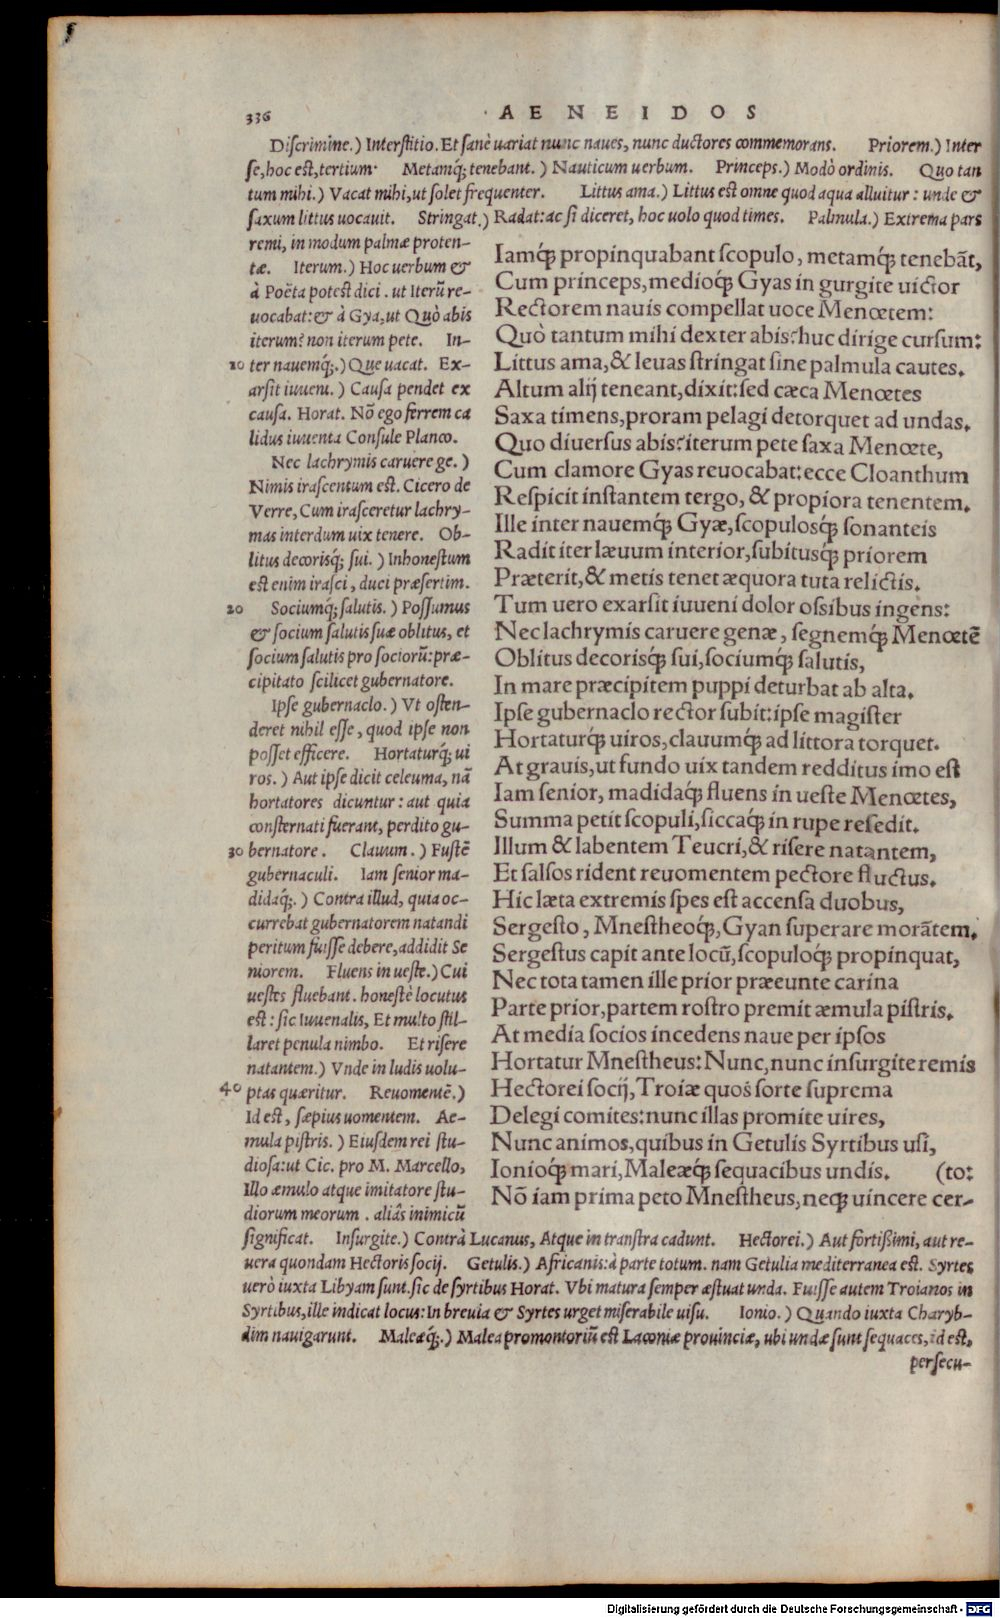 336
AENEIDOS
Diſcrimine.) Interſtitio. Et ſanè uariat nunc naues, nunc ductores commemorans. Priorem.) Inter
ſe, hoc eſt, tertium· Metamq́; tenebant.) Nauticum uerbum. Princeps.) Modò ordinis. Quo tan
tum mihi.) Vacat mihi, ut ſolet frequenter. Littus ama.) Littus eſt omne quod aqua alluitur: unde &
ſaxum littus uocauit. Stringat.) Radat: ac ſi diceret, hoc uolo quod times. Palmula.) Extrema pars
remi, in modum palmæ proten-
tæ. Iterum.) Hoc uerbum &
à Poëta poteſt dici. ut Iterũ re-
uocabat: & à Gya, ut Quò abis
iterum? non iterum pete. In-
10 ter nauemq́;.) Que uacat. Ex-
arſit iuueni.) Cauſa pendet ex
cauſa. Horat. Nõ ego ferrem ca
lidus iuuenta Conſule Planco.
Nec lachrymis caruere ge.)
Nimis iraſcentum eſt. Cicero de
Verre, Cum iraſceretur lachry-
mas interdum uix tenere. Ob-
litus decorisq́; ſui.) Inhoneſtum
eſt enim iraſci, duci præſertim.
20 Sociumq́; ſalutis.) Poſſumus
& ſocium ſalutis ſuæ oblitus, et
ſocium ſalutis pro ſociorũ: præ-
cipitato ſcilicet gubernatore.
Ipſe gubernaclo.) Vt oſten-
deret nihil eſſe, quod ipſe non
poſſet efficere. Hortaturq́; ui
ros.) Aut ipſe dicit celeuma, nã
hortatores dicuntur: aut quia
conſternati fuerant, perdito gu-
30 bernatore. Clauum.) Fuſtẽ
gubernaculi. Iam ſenior ma-
didaq́;.) Contra illud, quia oc-
currebat gubernatorem natandi
peritum fuiſſe debere, addidit Se
niorem. Fluens in ueſte.) Cui
ueſtes fluebant. honeſtè locutus
eſt: ſic Iuuenalis, Et multo ſtil-
laret penula nimbo. Et riſere
natantem.) Vnde in ludis uolu-
40 ptas quæritur. Reuomentẽ.)
Id eſt, ſæpius uomentem. Ae-
mula piſtris.) Eiuſdem rei ſtu-
dioſa: ut Cic. pro M. Marcello,
Illo æmulo atque imitatore ſtu-
diorum meorum. aliâs inimicũ
Iamq́; propinquabant ſcopulo, metamq́; tenebãt,
Cum princeps, medioq́; Gyas in gurgite uictor
Rectorem nauis compellat uoce Menœtem:
Quò tantum mihi dexter abis? huc dirige curſum:
Littus ama, & leuas ſtringat ſine palmula cautes.
Altum alij teneant, dixit: ſed cæca Menœtes
Saxa timens, proram pelagi detorquet ad undas.
Quo diuerſus abis? iterum pete ſaxa Menœte,
Cum clamore Gyas reuocabat: ecce Cloanthum
Reſpicit inſtantem tergo, & propiora tenentem.
Ille inter nauemq́; Gyæ, ſcopulosq́; ſonanteis
Radit iter læuum interior, ſubitusq́; priorem
Præterit, & metis tenet æquora tuta relictis.
Tum uero exarſit iuueni dolor oſsibus ingens:
Nec lachrymis caruere genæ, ſegnemq́; Menœtẽ
Oblitus decorisq́; ſui, ſociumq́; ſalutis,
In mare præcipitem puppi deturbat ab alta.
Ipſe gubernaclo rector ſubit: ipſe magiſter
Hortaturq́; uiros, clauumq́; ad littora torquet.
At grauis, ut fundo uix tandem redditus imo eſt
Iam ſenior, madidaq́; fluens in ueſte Menœtes,
Summa petit ſcopuli, ſiccaq́; in rupe reſedit.
Illum & labentem Teucri, & riſere natantem,
Et ſalſos rident reuomentem pectore fluctus.
Hic læta extremis ſpes eſt accenſa duobus,
Sergeſto, Mneſtheoq́;, Gyan ſuperare morãtem.
Sergeſtus capit ante locũ, ſcopuloq́; propinquat,
Nec tota tamen ille prior præeunte carina
Parte prior, partem roſtro premit æmula piſtris.
At media ſocios incedens naue per ipſos
Hortatur Mneſtheus: Nunc, nunc inſurgite remis
Hectorei ſocij, Troiæ quos ſorte ſuprema
Delegi comites: nunc illas promite uires,
Nunc animos, quibus in Getulis Syrtibus uſi,
Ionioq́; mari, Maleæq́; ſequacibus undis. (to:
Nõ iam prima peto Mneſtheus, neq; uincere cer-
ſignificat. Inſurgite.) Contrà Lucanus, Atque in tranſtra cadunt. Hectorei.) Aut fortißimi, aut re-
uera quondam Hectoris ſocij. Getulis.) Africanis: à parte totum. nam Getulia mediterranea eſt. Syrtes
uerò iuxta Libyam ſunt. ſic de ſyrtibus Horat. Vbi matura ſemper æſtuat unda. Fuiſſe autem Troianos in
Syrtibus, ille indicat locus: In breuia & Syrtes urget miſerabile uiſu. Ionio.) Quando iuxta Charyb-
dim nauigarunt. Maleæq́;.) Malea promontoriũ eſt Laconiæ prouinciæ, ubi undæ ſunt ſequaces, id eſt,
perſecu-
Digitalisierung gefördert durch die Deutsche Forschungsgemeinschaft - DFG